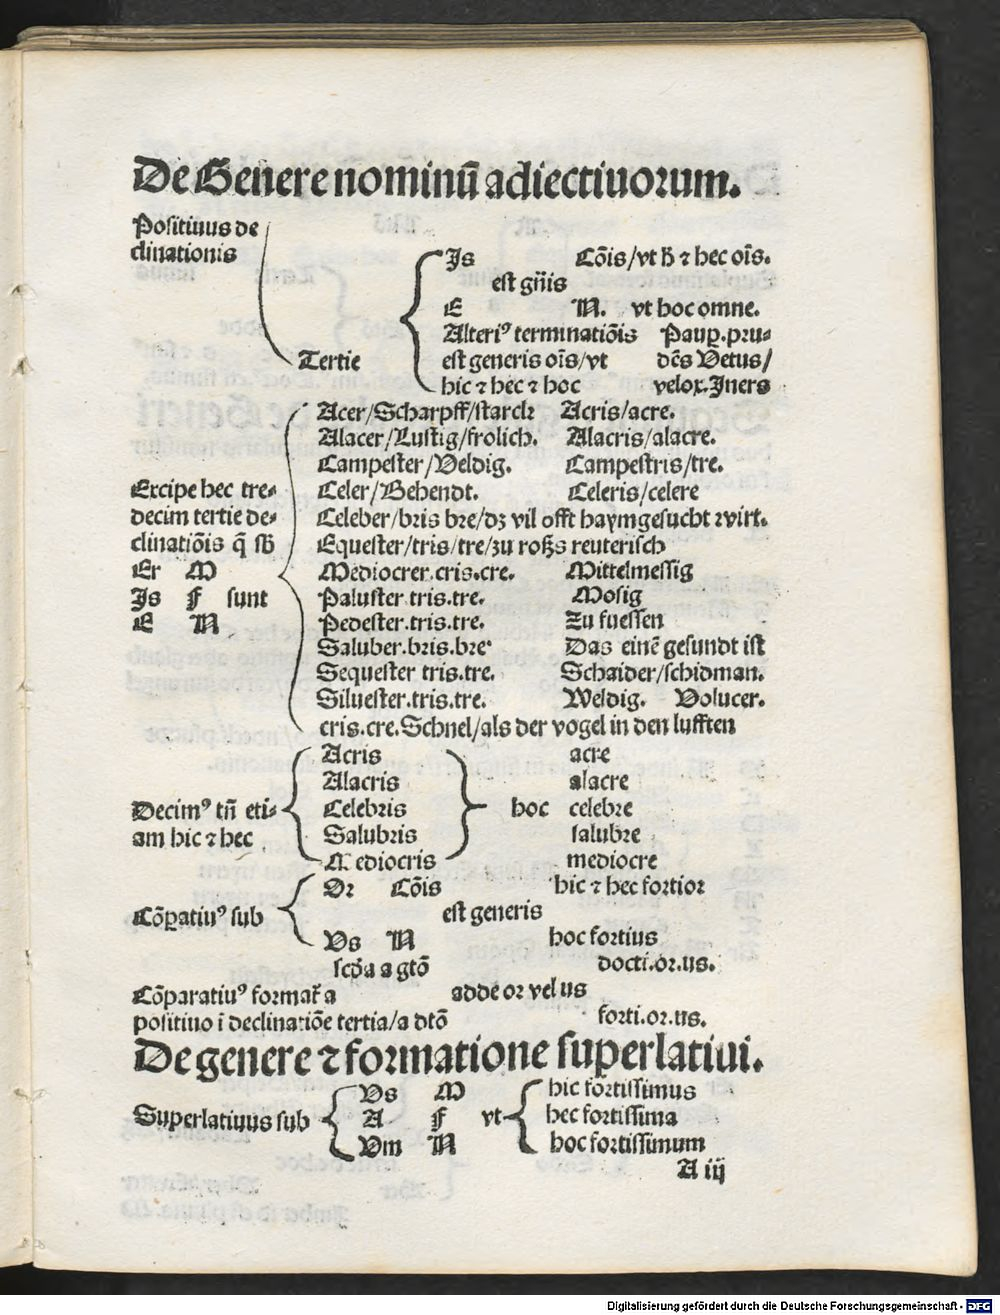 De Genere nominū adiectiuorum.
Positiuus de
clinationis
Tertie
Is Cōis/vt h̄ ⁊ hec oīs.
est gn̄is
E N. vt hoc omne.
Alteriꝰ terminatiōis Pauꝑ.pru-
est generis oīs/vt dēs Vetus/
hic ⁊ hec ⁊ hoc velox.Iners
Acer/Scharpff/starck Acris/acre.
Alacer/Lustig/frolich. Alacris/alacre.
Campester/Veldig. Campestris/tre.
Celer/Behendt. Celeris/celere
Excipe hec tre-
decim tertie de-
clinatiōis q̄ sb̄
Er M
Is F sunt
E N
Celeber/bris bre/dz vil offt haymgesucht ⁊virt.
Equester/tris/tre/zu roßs reuterisch
Mediocrer.cris.cre. Mittelmessig
Paluster.tris.tre. Mosig
Pedester.tris.tre. Zu fuessen
Saluber.bris.bre Das einē gesundt ist
Sequester tris.tre. Schaider/schidman.
Siluester.tris.tre. Weldig. Volucer.
cris.cre.Schnel/als der vogel in den lufften
Decimꝰ tn̄ eti-
am hic ⁊ hec
Acris acre
Alacris alacre
Celebris hoc celebre
Salubris salubre
Mediocris mediocre
Cōꝑatiuꝰ sub
Or Cōis hic ⁊ hec fortior
est generis
Vs N hoc fortius
a gtō docti.or.us.
Cōparatiuꝰ format̄ a adde or vel us
positiuo ī declinatiōe tertia/a dtō forti.or.us.
De genere ⁊ formatione superlatiui.
Superlatiuus sub
Vs M hic fortissimus
A F vt hec fortissima
Vm N hoc fortissimum
A iij
Digitalisierung gefördert durch die Deutsche Forschungsgemeinschaft - DFG